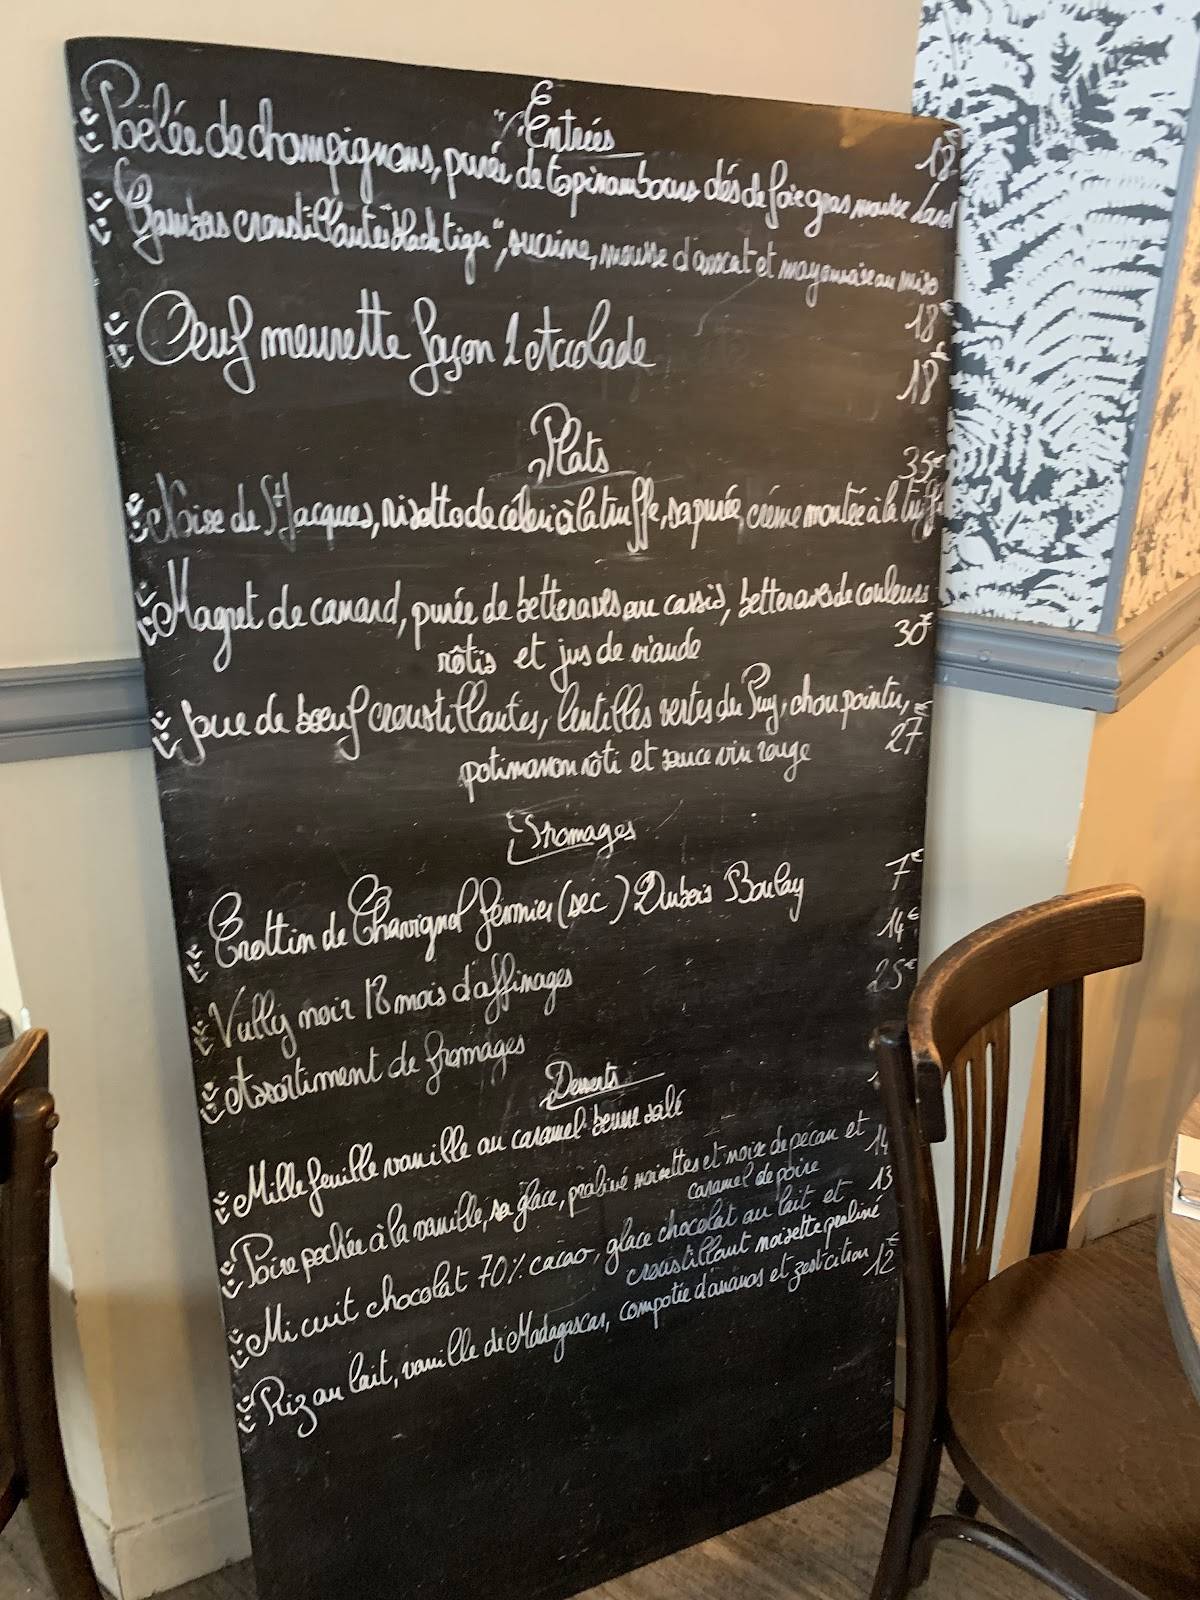 Entrées
Poêlée de champignons, purée de topinambours dés de foie gras mousse lard 18€
Gambas croustillantes "black tiger", sucrine, mousse d'avocat et mayonnaise au miso
18€
Œuf meurette façon l'Accolade
18€
Plats
35€
Noix de St Jacques, risotto de céleri à la truffe, sa purée, crème montée à la truffe
Magret de canard, purée de betteraves au cassis, betteraves de couleurs
rôtis et jus de viande 30€
Joue de bœuf croustillantes, lentilles vertes du Puy, chou pointu,
potimaron rôti et sauce vin rouge 27€
Fromages
Crottin de Chavignol fermier (sec) Dubois Boulay 7€
Vully noir 18 mois d'affinages 14€
Assortiment de fromages 25€
Desserts
Mille feuille vanille au caramel beurre salé
Poire pochée à la vanille, sa glace, praliné noisettes et noix de pécan et
caramel de poire 14
Mi cuit chocolat 70% cacao, glace chocolat au lait et
croustillant noisette praliné 13
Riz au lait, vanille de Madagascar, compotée d'ananas et zest citron 12€